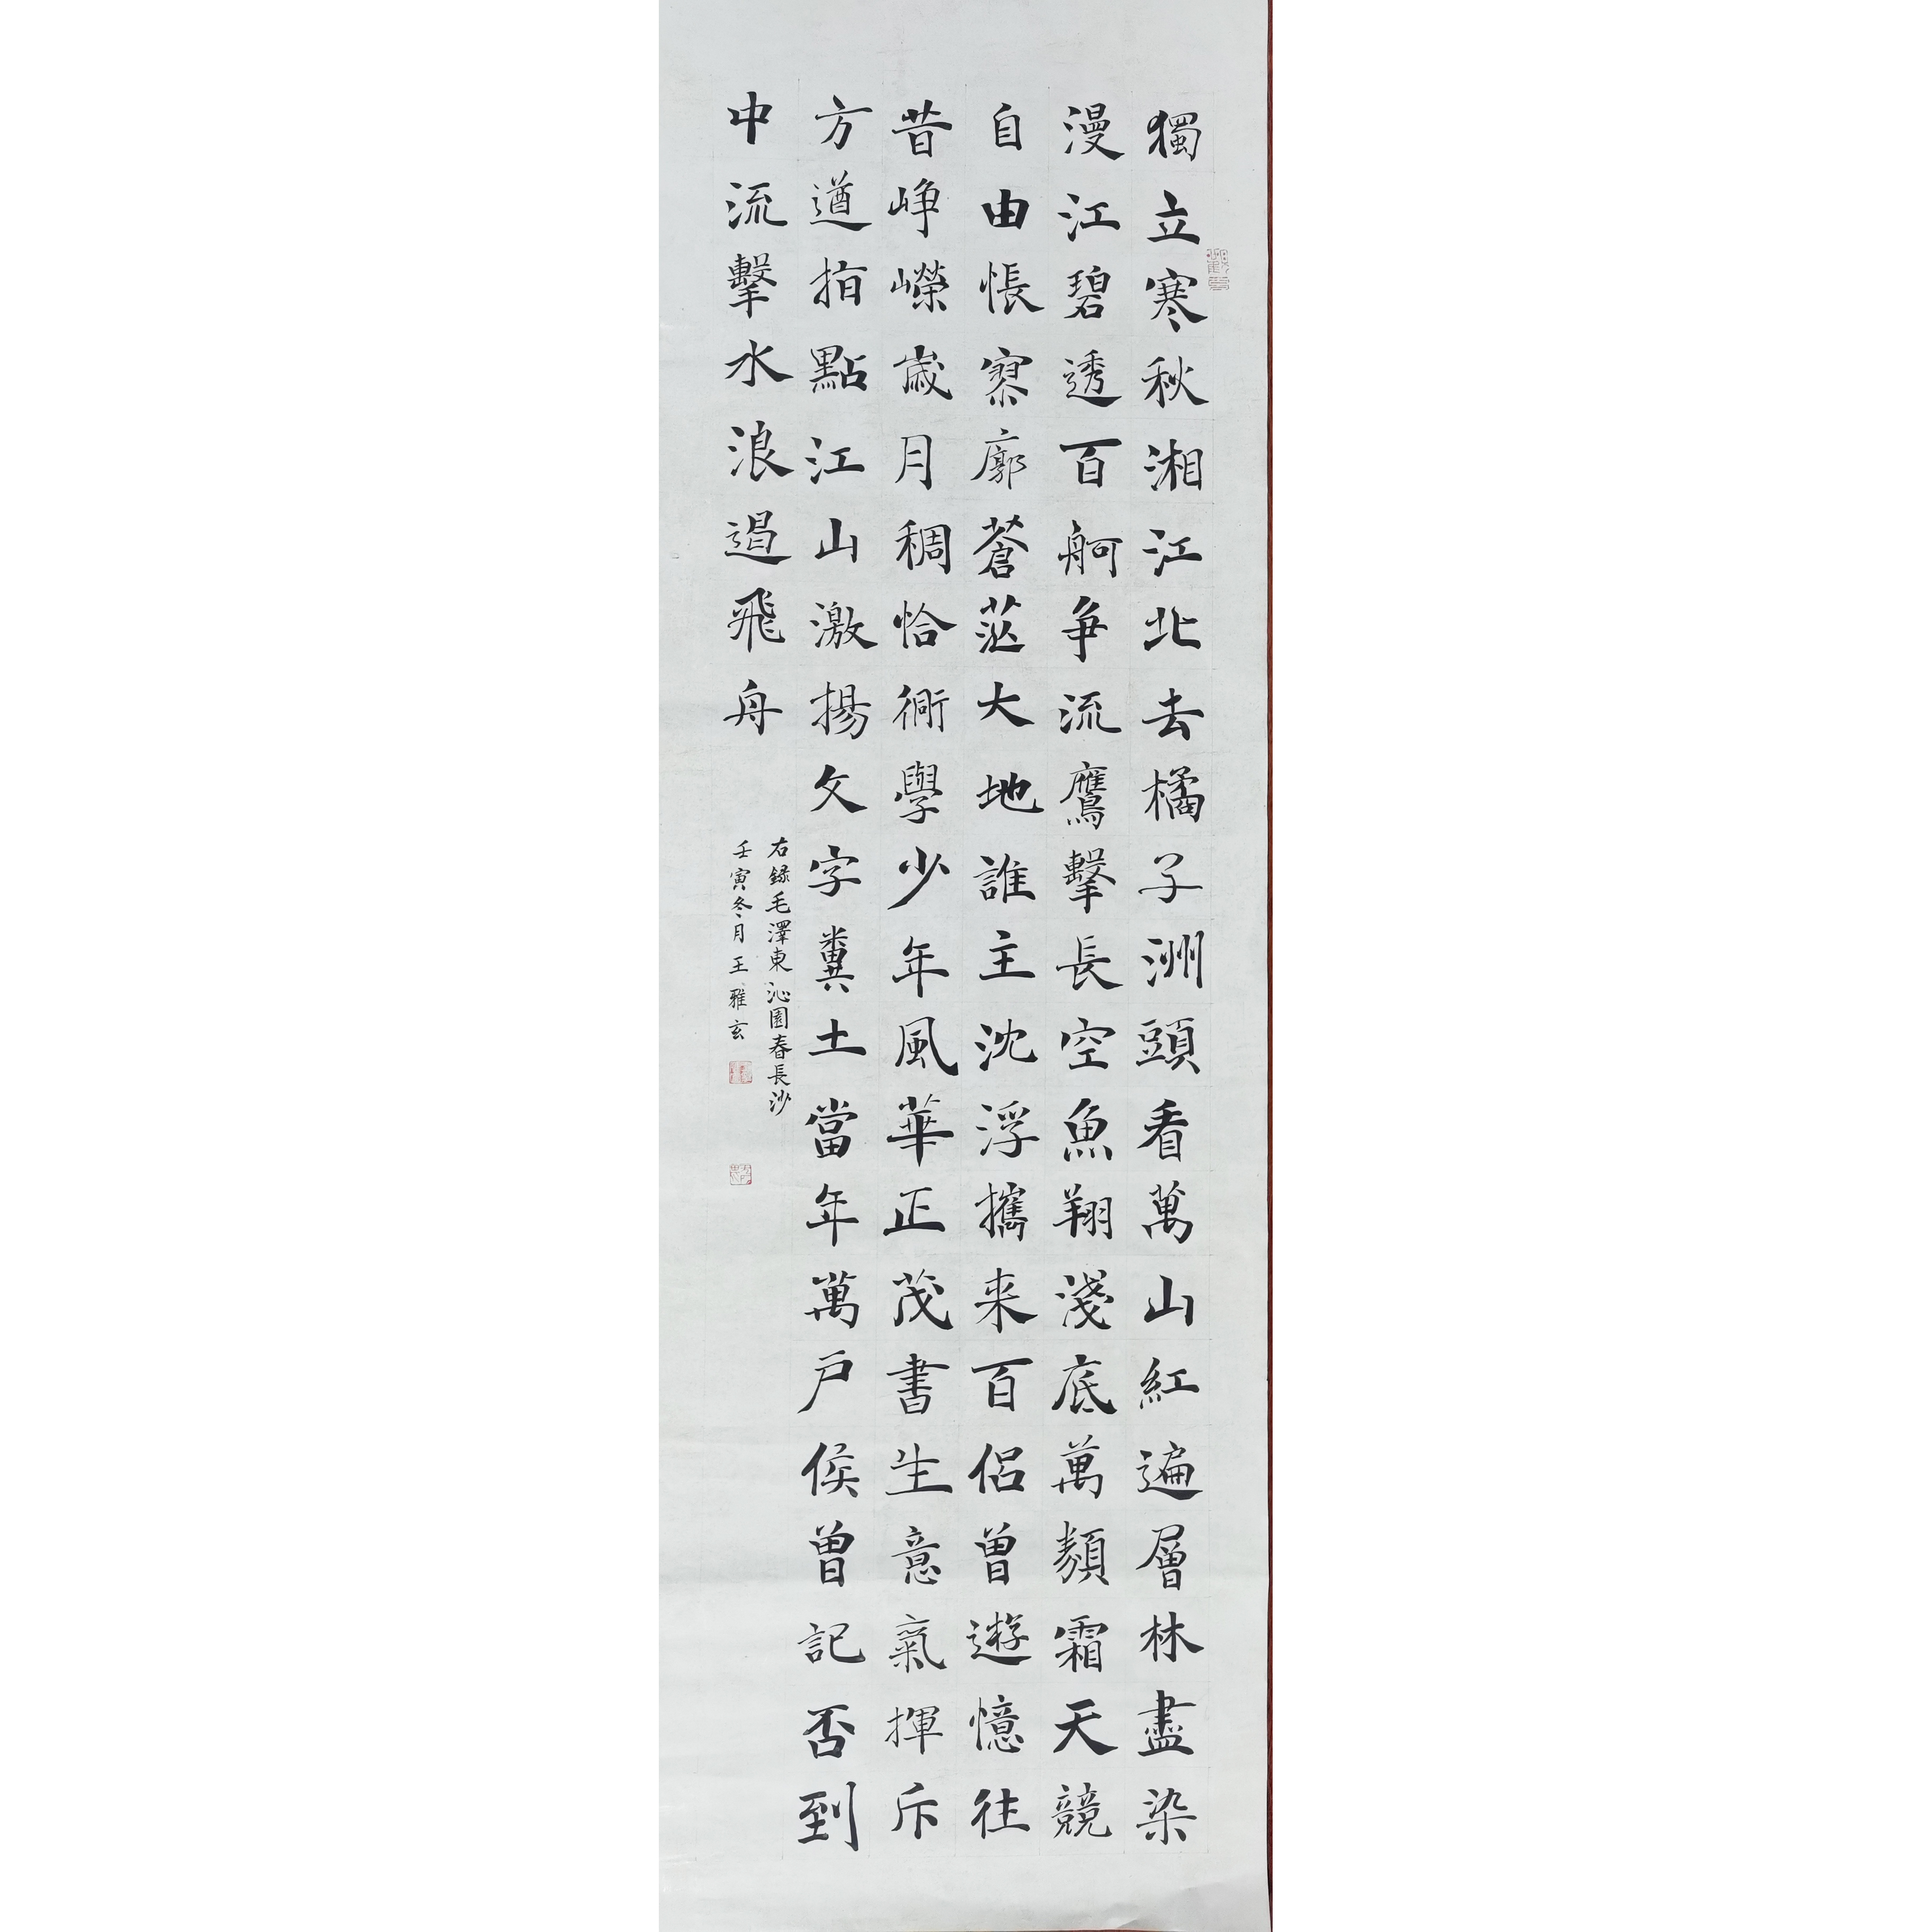 獨立寒秋湘江北去橘子洲頭看萬山紅遍層林盡染
漫江碧透百舸爭流鷹擊長空魚翔淺底萬類霜天競
自由悵寥廓蒼茫大地誰主沈浮攜来百侣曾遊憶往
昔崢嶸歲月稠恰衕學少年風華正茂書生意氣揮斥
方遒指點江山激揚文字糞土當年萬戶侯曾記否到
中流擊水浪遏飛舟
右録毛澤東沁園春長沙
壬寅冬月王雅玄